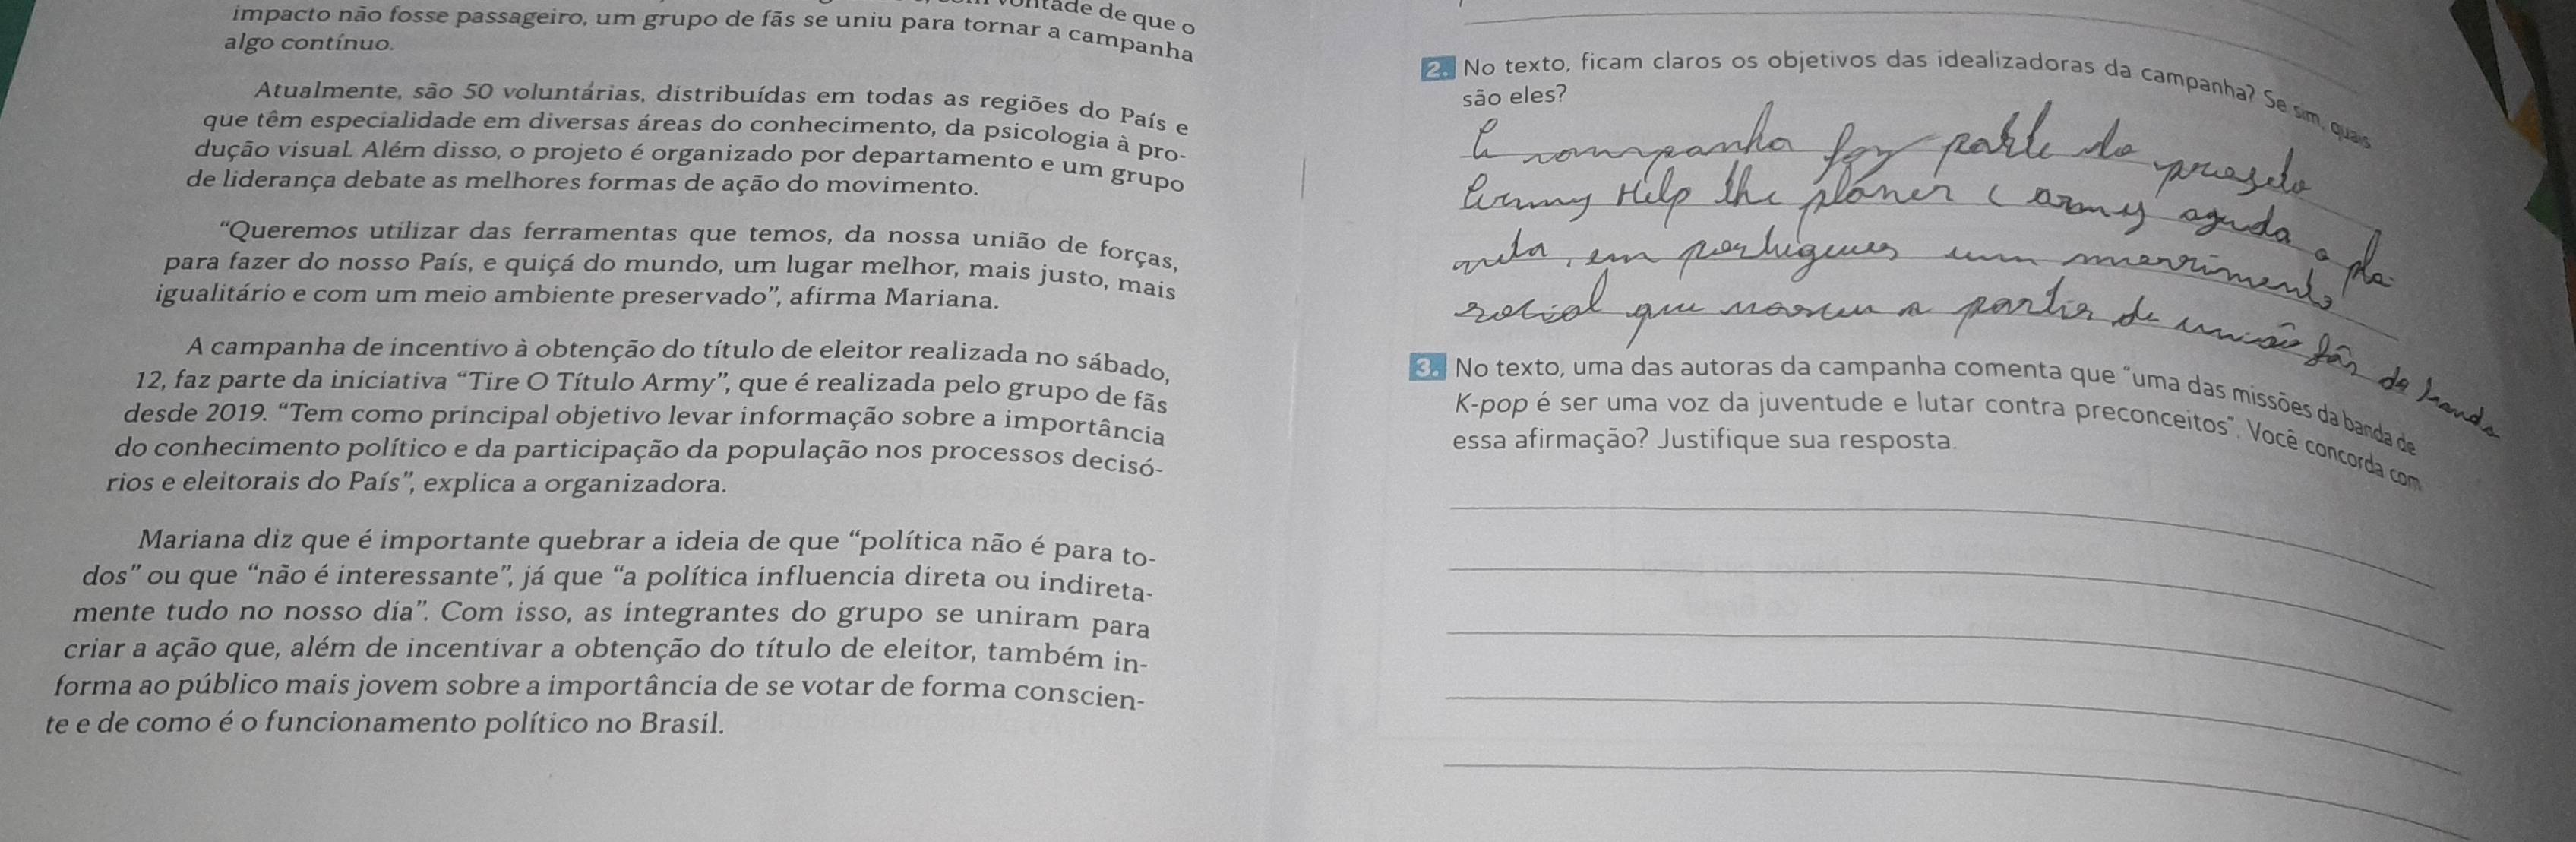 vontade de que o
impacto não fosse passageiro, um grupo de fãs se uniu para tornar a campanha
algo contínuo.
Atualmente, são 50 voluntárias, distribuídas em todas as regiões do País e
que têm especialidade em diversas áreas do conhecimento, da psicologia à pro-
dução visual. Além disso, o projeto é organizado por departamento e um grupo
de liderança debate as melhores formas de ação do movimento.
“Queremos utilizar das ferramentas que temos, da nossa união de forças,
para fazer do nosso País, e quiçá do mundo, um lugar melhor, mais justo, mais
igualitário e com um meio ambiente preservado”, afirma Mariana.
A campanha de incentivo à obtenção do título de eleitor realizada no sábado,
12, faz parte da iniciativa “Tire O Título Army”, que é realizada pelo grupo de fãs
desde 2019. “Tem como principal objetivo levar informação sobre a importância
do conhecimento político e da participação da população nos processos decisó-
rios e eleitorais do País”, explica a organizadora.
Mariana diz que é importante quebrar a ideia de que “política não é para to-
dos” ou que “não é interessante”, já que “a política influencia direta ou indireta-
mente tudo no nosso dia”. Com isso, as integrantes do grupo se uniram para
criar a ação que, além de incentivar a obtenção do título de eleitor, também in-
forma ao público mais jovem sobre a importância de se votar de forma conscien-
te e de como é o funcionamento político no Brasil.
2. No texto, ficam claros os objetivos das idealizadoras da campanha? Se sim, quais
são eles?
A campanha faz parte do
Army Help the planer army a
em um
social que a partir de união fãs da banda
3. No texto, uma das autoras da campanha comenta que “uma das missões da banda de
K-pop é ser uma voz da juventude e lutar contra preconceitos”. Você concorda com
essa afirmação? Justifique sua resposta.